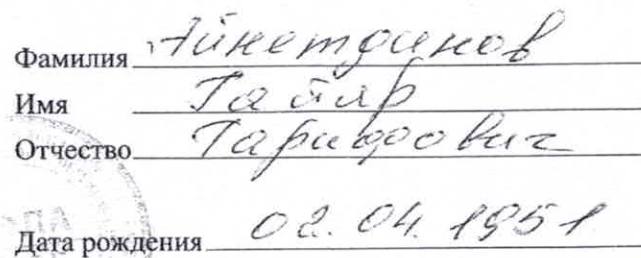 Фамилия Айнетдинов
Имя Тайяр
Отчество Гарифович
Дата рождения 02.04.1951